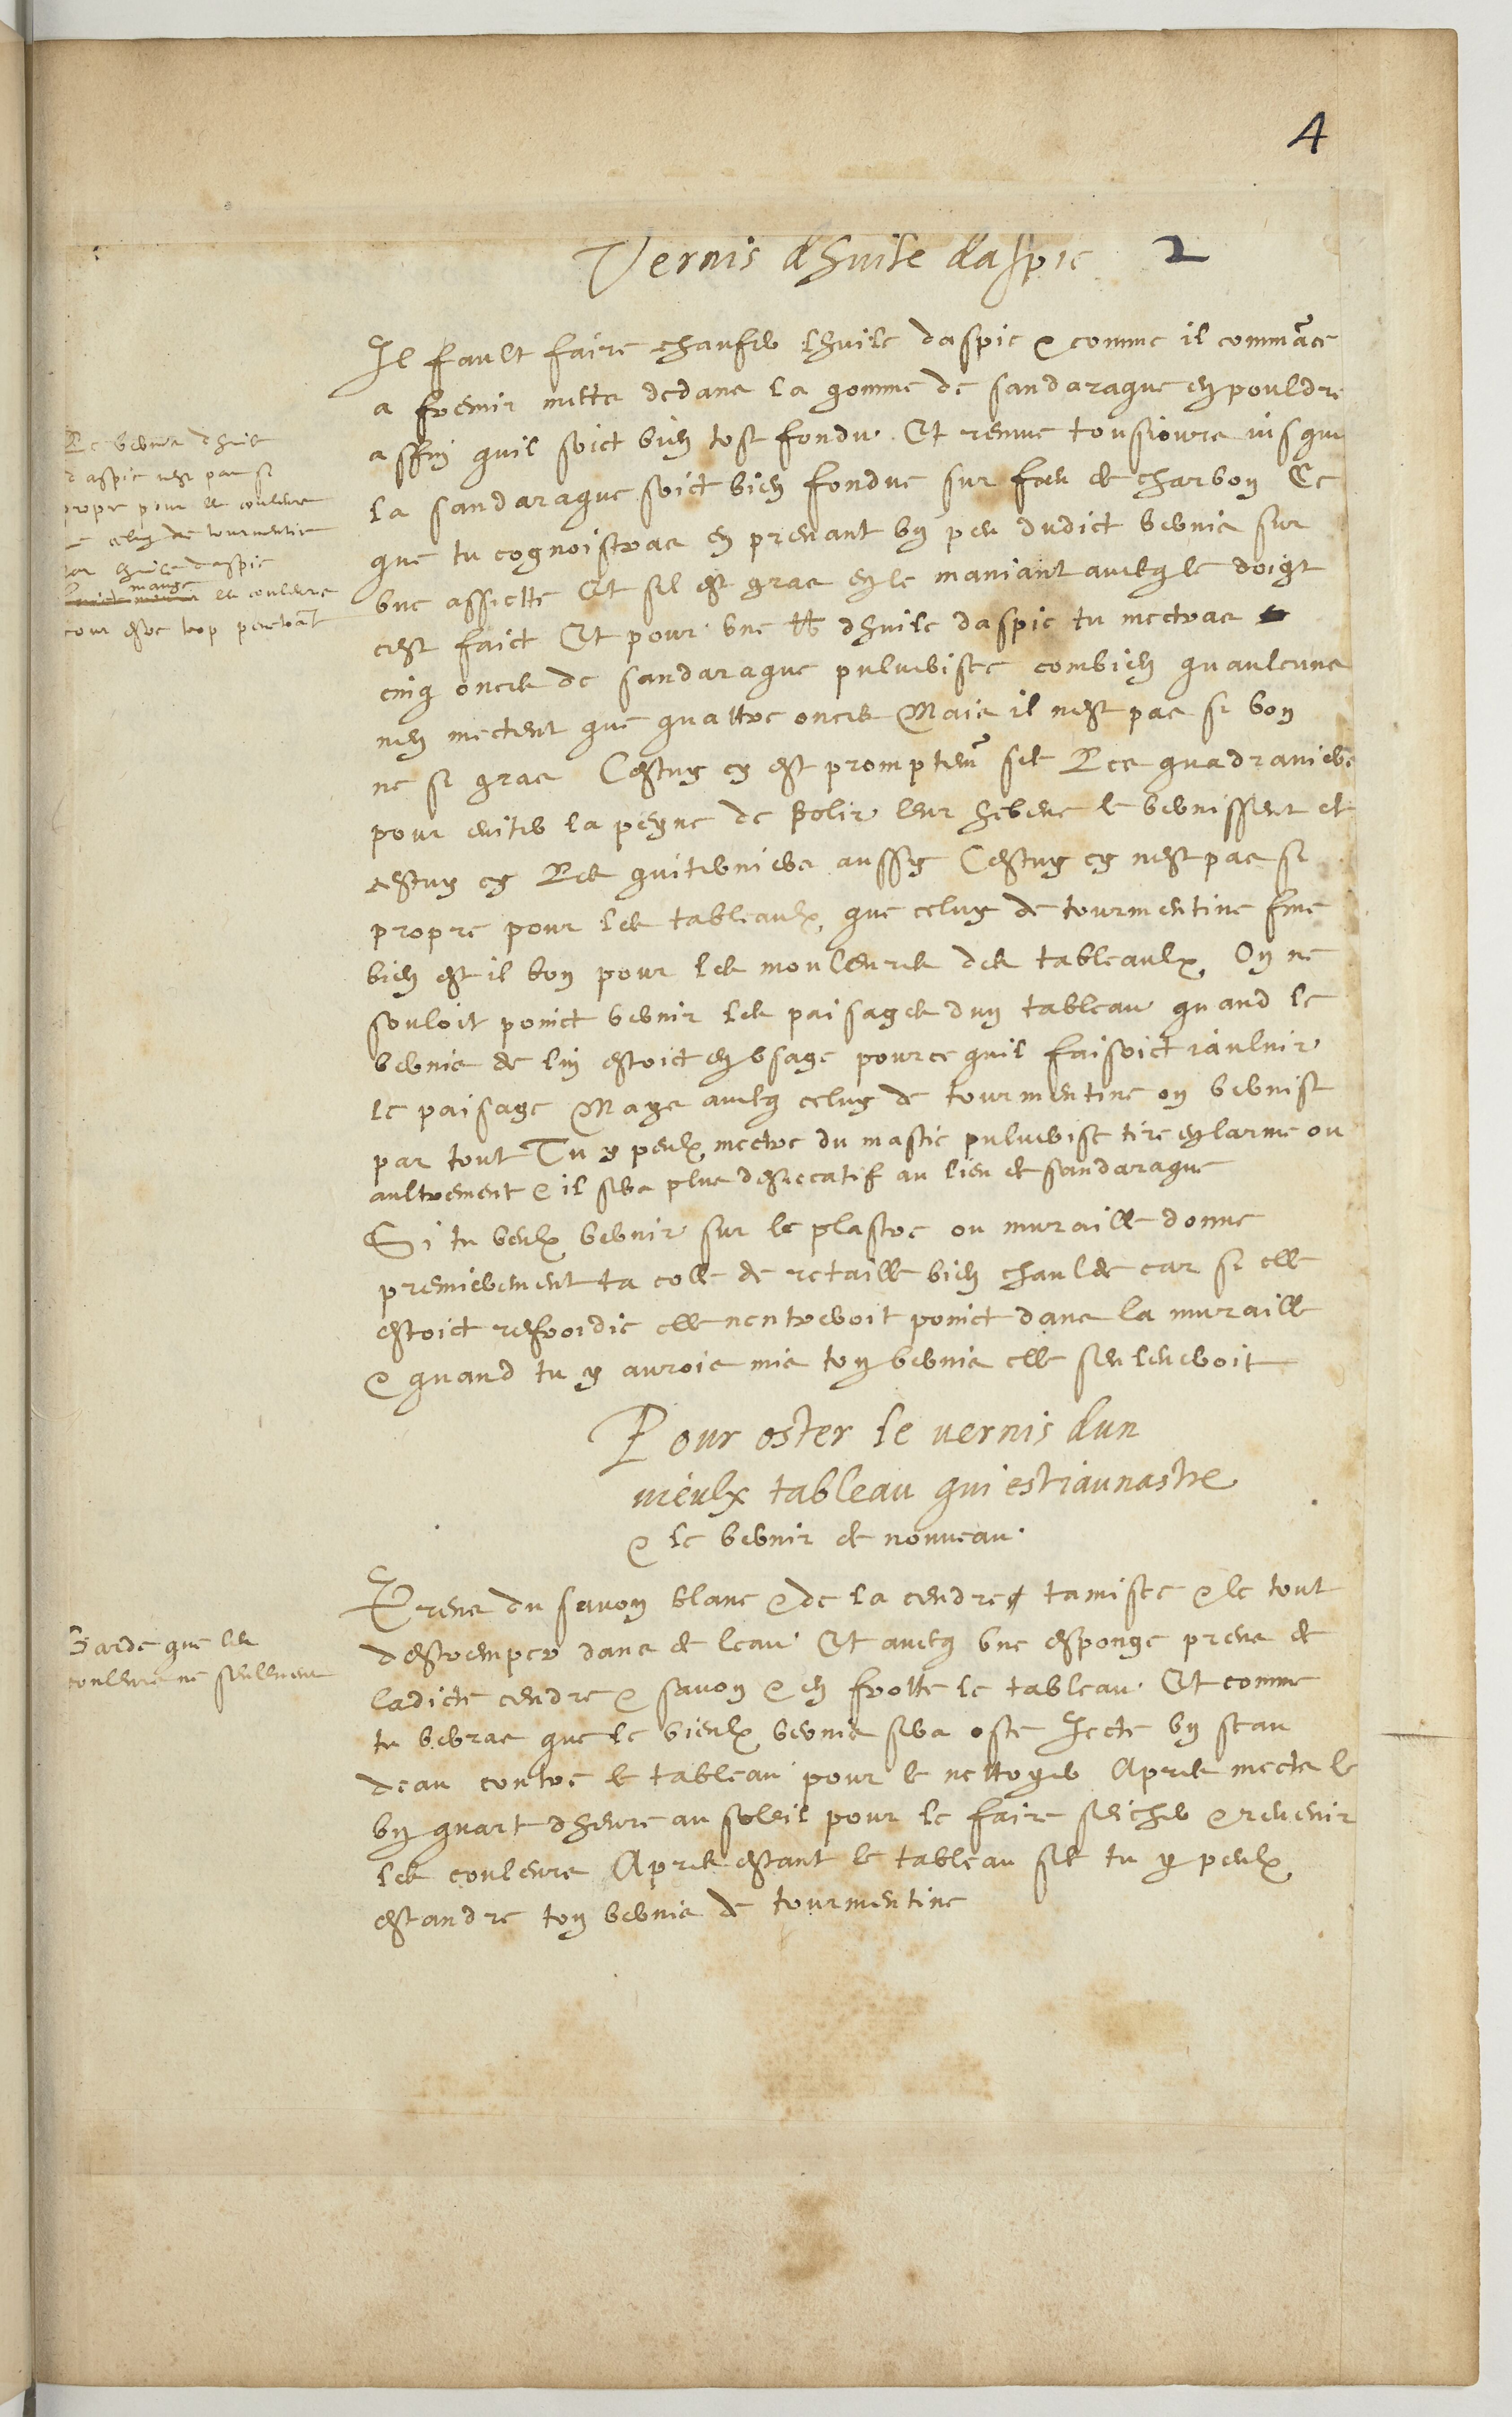 4
Vernis dhuile daspic 2
Il fault faire chaufer lhuile daspic & comme il commāce
a fremir metts dedans la gomme de sandaraque en pouldre
affin quil soict bien tost fondu Et remue tousjours jusque
la sandaraque soict bien fondue sur foeu de charbon Ce
que tu cognoistras en prenant un peu dudict vernis sur
une assiette Et sil est gras en le maniant avecq le doigt
cest faict Et pour une lb dhuile daspic tu mectras
cinq onces de sandaraque pulverisee combien quaulcuns
nen mectent que quattre onces Mais il nest pas si bon
ne si gras Cestuy cy est promptem sec Les quadraniers
pour eviter la peyne de polir leur hebene le vernissent de
cestuy cy Les guiterniers aussy Cestuy cy nest pas si
propre pour les tableaulx que celuy de tourmentine fine
bien est il bon pour les mouleures des tableaulx On ne
souloit poinct vernir les paisages dun tableau quand le
vernis de lin estoict en usage pource quil faisoict jaulnir
le paisage Mays avecq celuy de tourmentine on vernist
par tout Tu y peulx mectre du mastic pulverise tire en larme ou
aultrement & il sera plus desiccatif au lieu de sandaraque
Si tu veulx vernir sur le plastre ou muraille donne
premierement ta colle de retaille bien chaulde car si elle
estoict refroidie elle nentreroit poinct dans la muraille
& quand tu y aurois mis ton vernis elle senleveroit
Le vernis dhuile
daspic nest pas si
propre pour les couleurs
celuy de tourmentine
lhuile daspic
mange
les couleurs
pour estre trop penetrāt
Pour oster le vernis dun
vieulx tableau qui est jaunastre
& le vernir de nouveau
Prens du savon blanc & de la cendre tamisee & le tout
destremper dans de leau Et avecq une esponge prens de
ladicte cendre & savon & en frotte le tableau Et comme
tu verras que le vieulx vernis sera oste Jecte un seau
deau contre le tableau pour le nettoyer Apres mects le
un quart dheure au soleil pour le faire seicher & revenir
les couleurs Apres estant le tableau sec tu y peulx
estandre ton vernis de tourmentine
Garde que les
couleurs ne senlevent